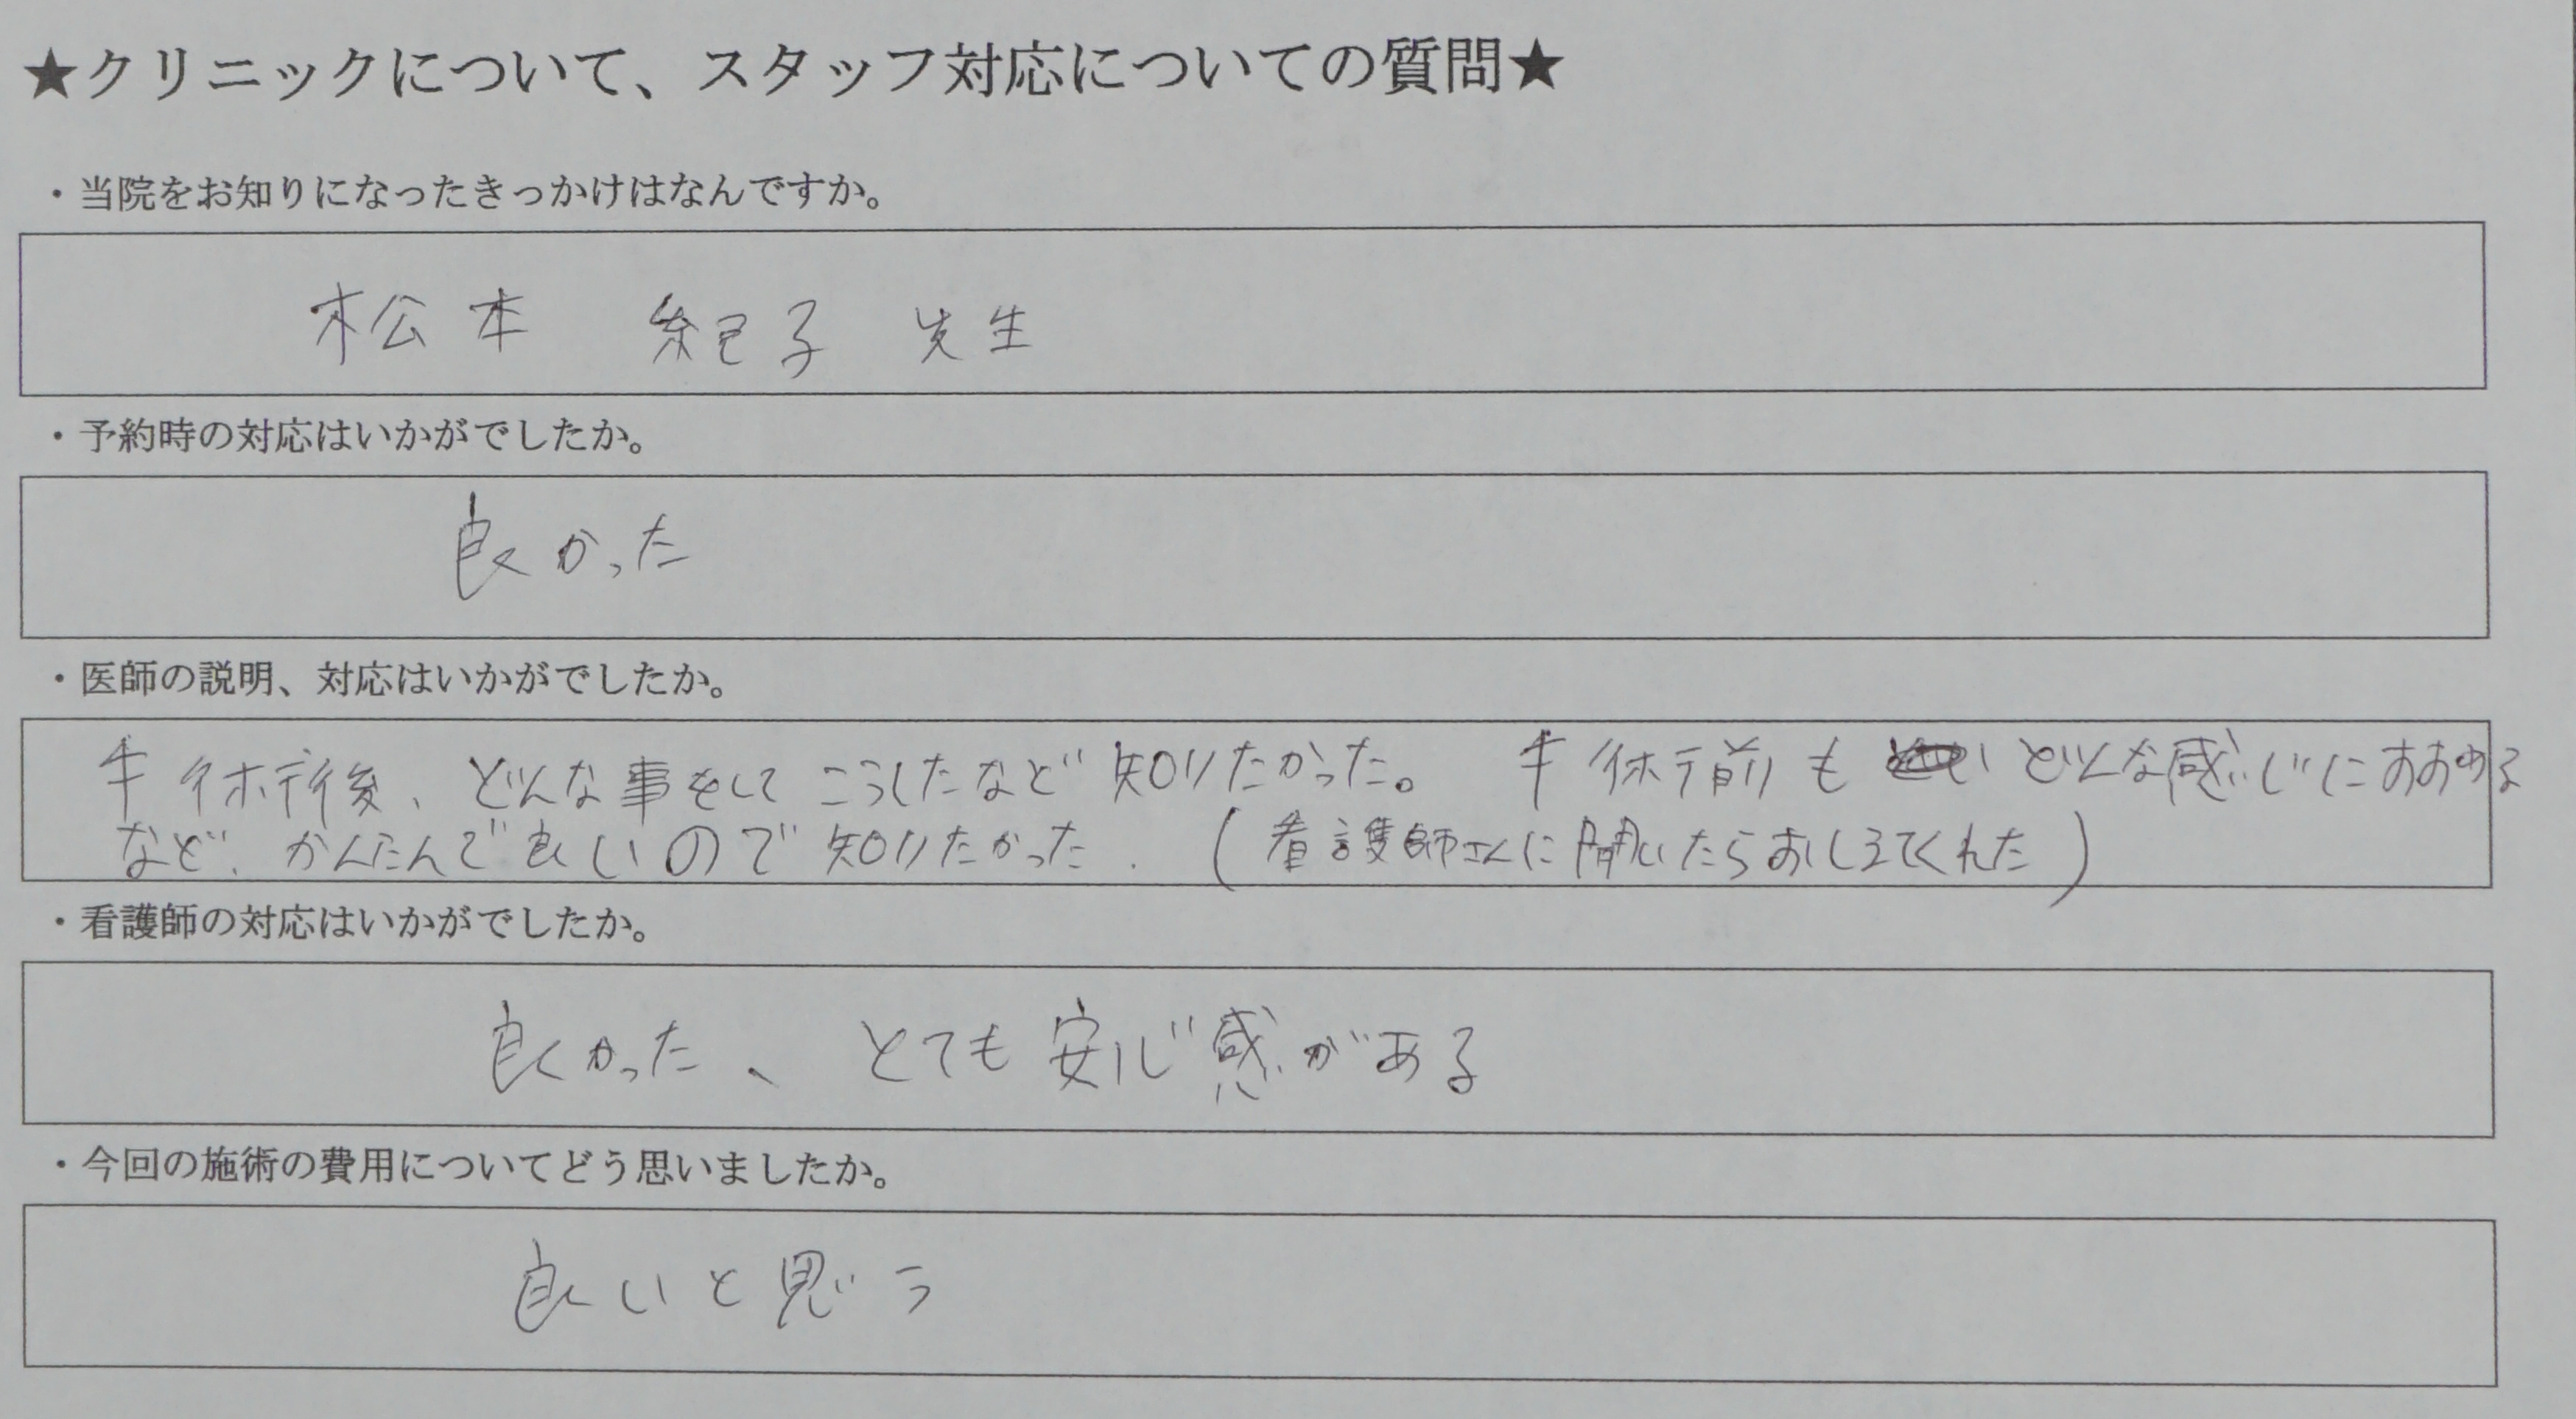 ★クリニックについて、スタッフ対応についての質問★
・当院をお知りになったきっかけはなんですか。
松本 紀子 先生
・予約時の対応はいかがでしたか。
良かった
・医師の説明、対応はいかがでしたか。
手術後、どんな事をして こうしたなど 知りたかった。 手術前も どんな感じに
など、かんたんで良いので 知りたかった. (看護師さんに聞いたらおしえてくれた)
・看護師の対応はいかがでしたか。
良かった、とても安心感がある
・今回の施術の費用についてどう思いましたか。
良いと思う